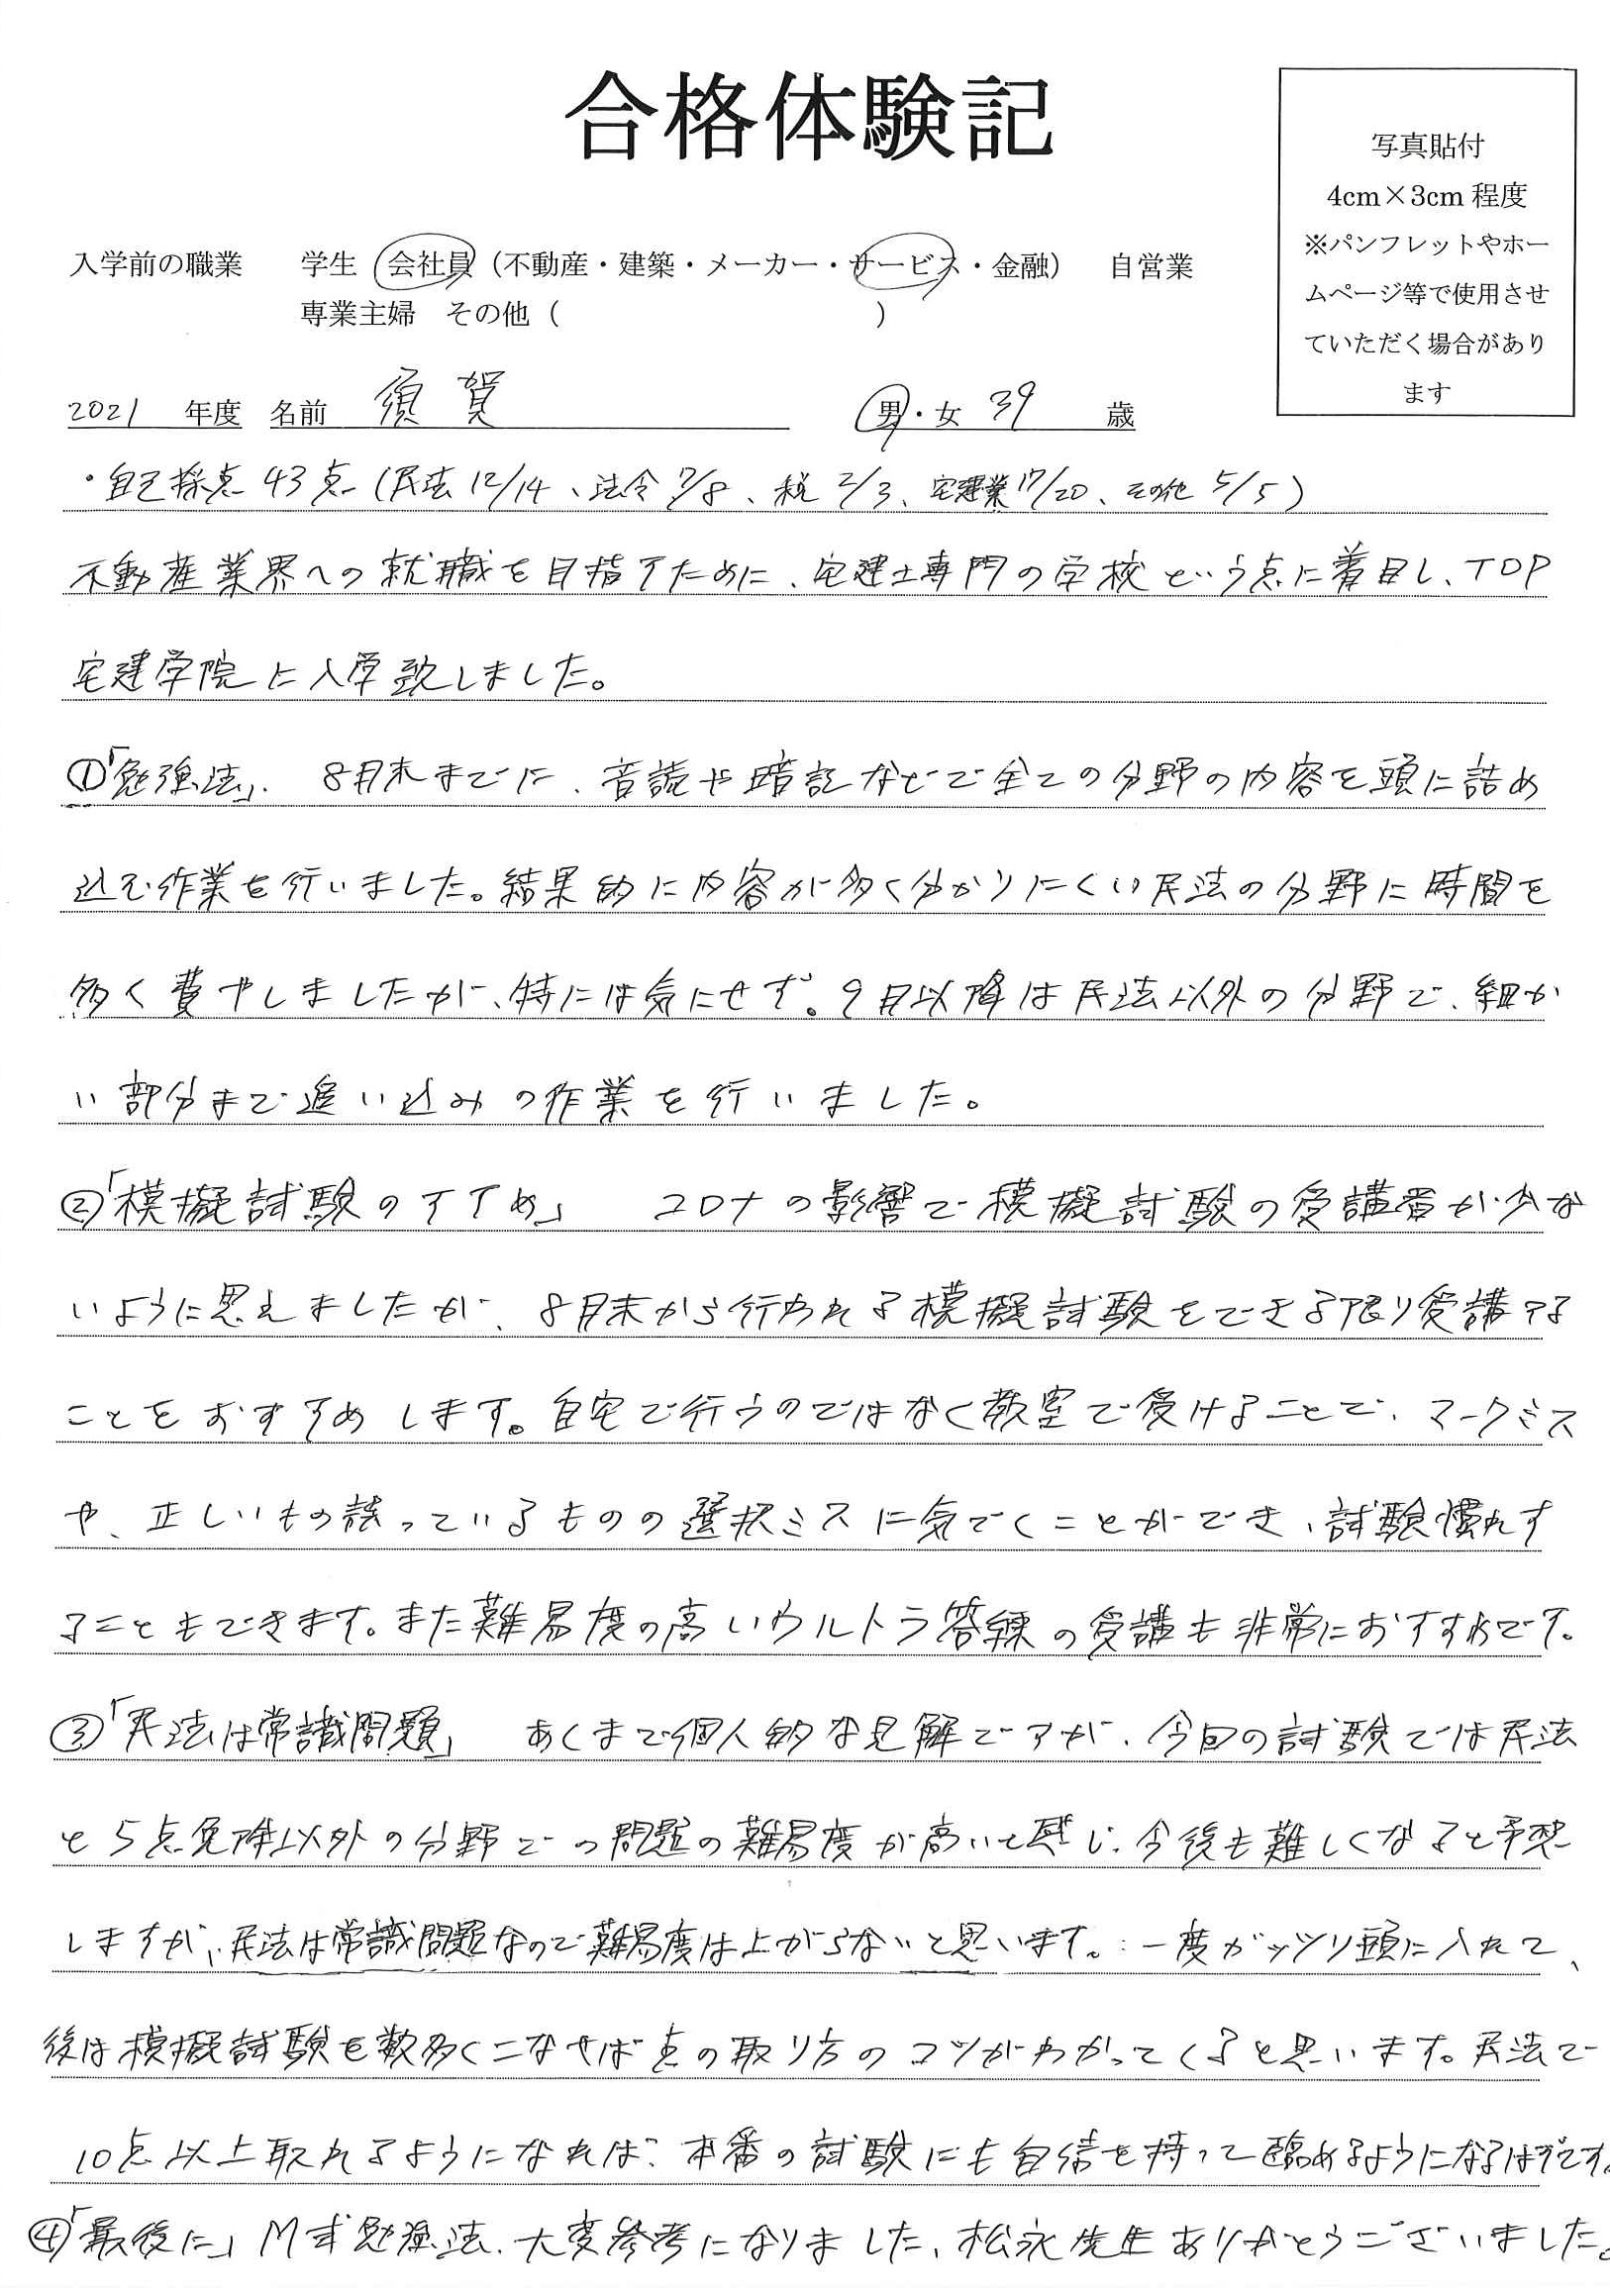 合格体験記
写真貼付
4cm×3cm 程度
※パンフレットやホー
ムページ等で使用させ
ていただく場合があり
ます
入学前の職業 学生 会社員（不動産・建築・メーカー・サービス・金融） 自営業
専業主婦 その他（ ）
2021 年度 名前 須賀 男・女 39 歳
・自己採点 43点（民法12/14、法令7/8、税2/3、宅建業17/20、その他5/5）
不動産業界への就職を目指すために、宅建士専門の学校という点に着目し、TOP
宅建学院に入学致しました。
①「勉強法」. 8月末までに、音読や暗記などで全ての分野の内容を頭に詰め
込む作業を行いました。結果的に内容が多く分かりにくい民法の分野に時間を
多く費やしましたが、特には気にせず。9月以降は民法以外の分野で、細か
い部分まで追い込みの作業を行いました。
②「模擬試験のすすめ」 コロナの影響で模擬試験の受講者が少な
いように思えましたが、8月末から行われる模擬試験をできる限り受講する
ことをおすすめします。自宅で行うのではなく教室で受けることで、マークミス
や、正しいもの誤っているものの選択ミスに気でくことができ、試験慣れす
ることもできます。また難易度の高いウルトラ答練の受講も非常におすすめです。
③「民法は常識問題」 あくまで個人的な見解ですが、今回の試験では民法
と5点免除以外の分野での問題の難易度が高いと感じ、今後も難しくなると予想
しますが、民法は常識問題なので難易度は上がらないと思います。一度ガッツリ頭に入れて、
後は模擬試験を数多くこなせば点の取り方のコツがわかってくると思います。民法で
10点以上取れるようになれば、本番の試験にも自信を持って臨めるようになるはずです。
④「最後に」M式勉強法、大変参考になりました、松永先生ありがとうございました。